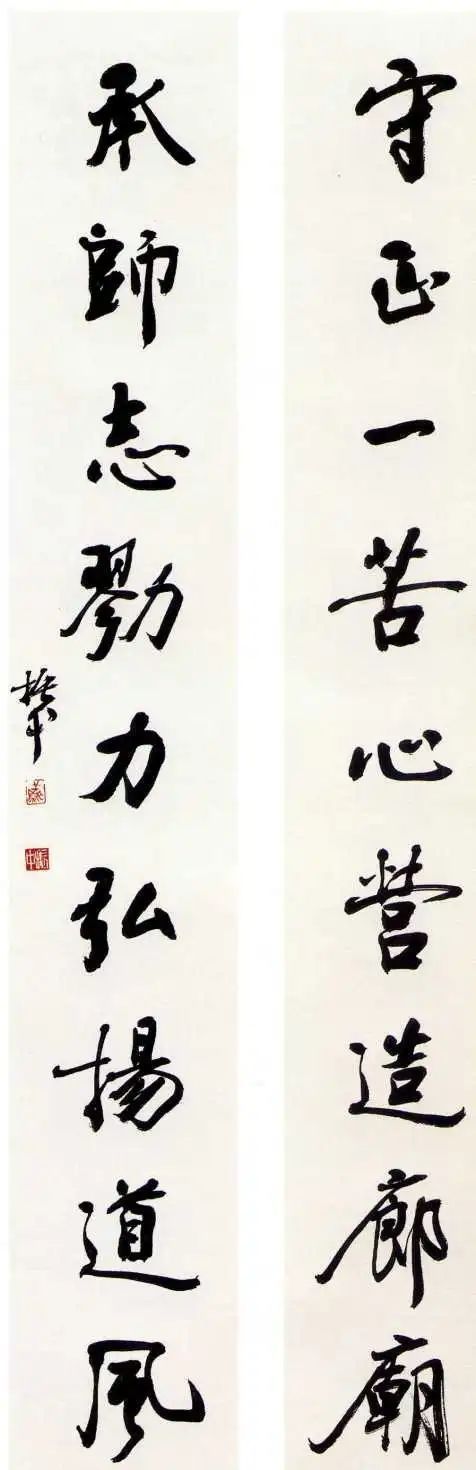 守正一苦心營造廊廟
承師志勠力弘揚道風